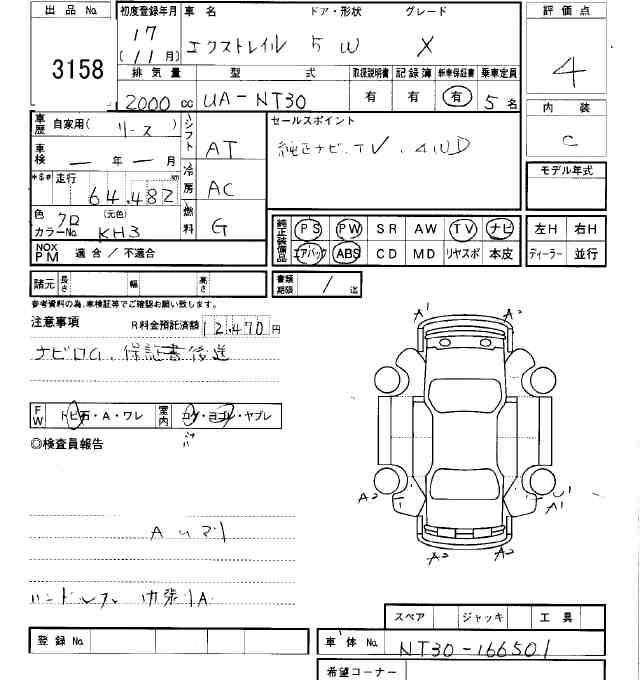 出品No. 3158
初度登録年月 17 (11月)
車名 ドア・形状 グレード
エクストレイル 5 W X
評価点 4
排気量 型式 取扱説明書 記録簿 新車保証書 乗車定員
2000cc UA-NT30 有 有 有 5名
内装 C
車歴 自家用(リース)
シフト AT
セールスポイント
純正ナビ、TV、4WD
車検 ー年ー月
冷房 AC
モデル年式
走行 64,482 km
色 クロ (元色)
カラーNo. KH3
燃料 G
純正装備品 PS PW SR AW TV ナビ
エアバック ABS CD MD リヤスポ 本皮
左H 右H
ディーラー 並行
NOX PM 適合/不適合
諸元 長さ 幅 高さ
書類期限 / 迄
参考資料の為、車検証等でご確認お願い致します。
注意事項 R料金預託済額 12,470円
ナビロム、保証書後送
FW トビ石・A・ワレ 室内 コゲ・ヨゴレ・ヤブレ
◎検査員報告
A1 A1
A2 U1
A1
A2 A2
ハンドル
スペア ジャッキ 工具
登録No.
車体No. NT30-166501
希望コーナー